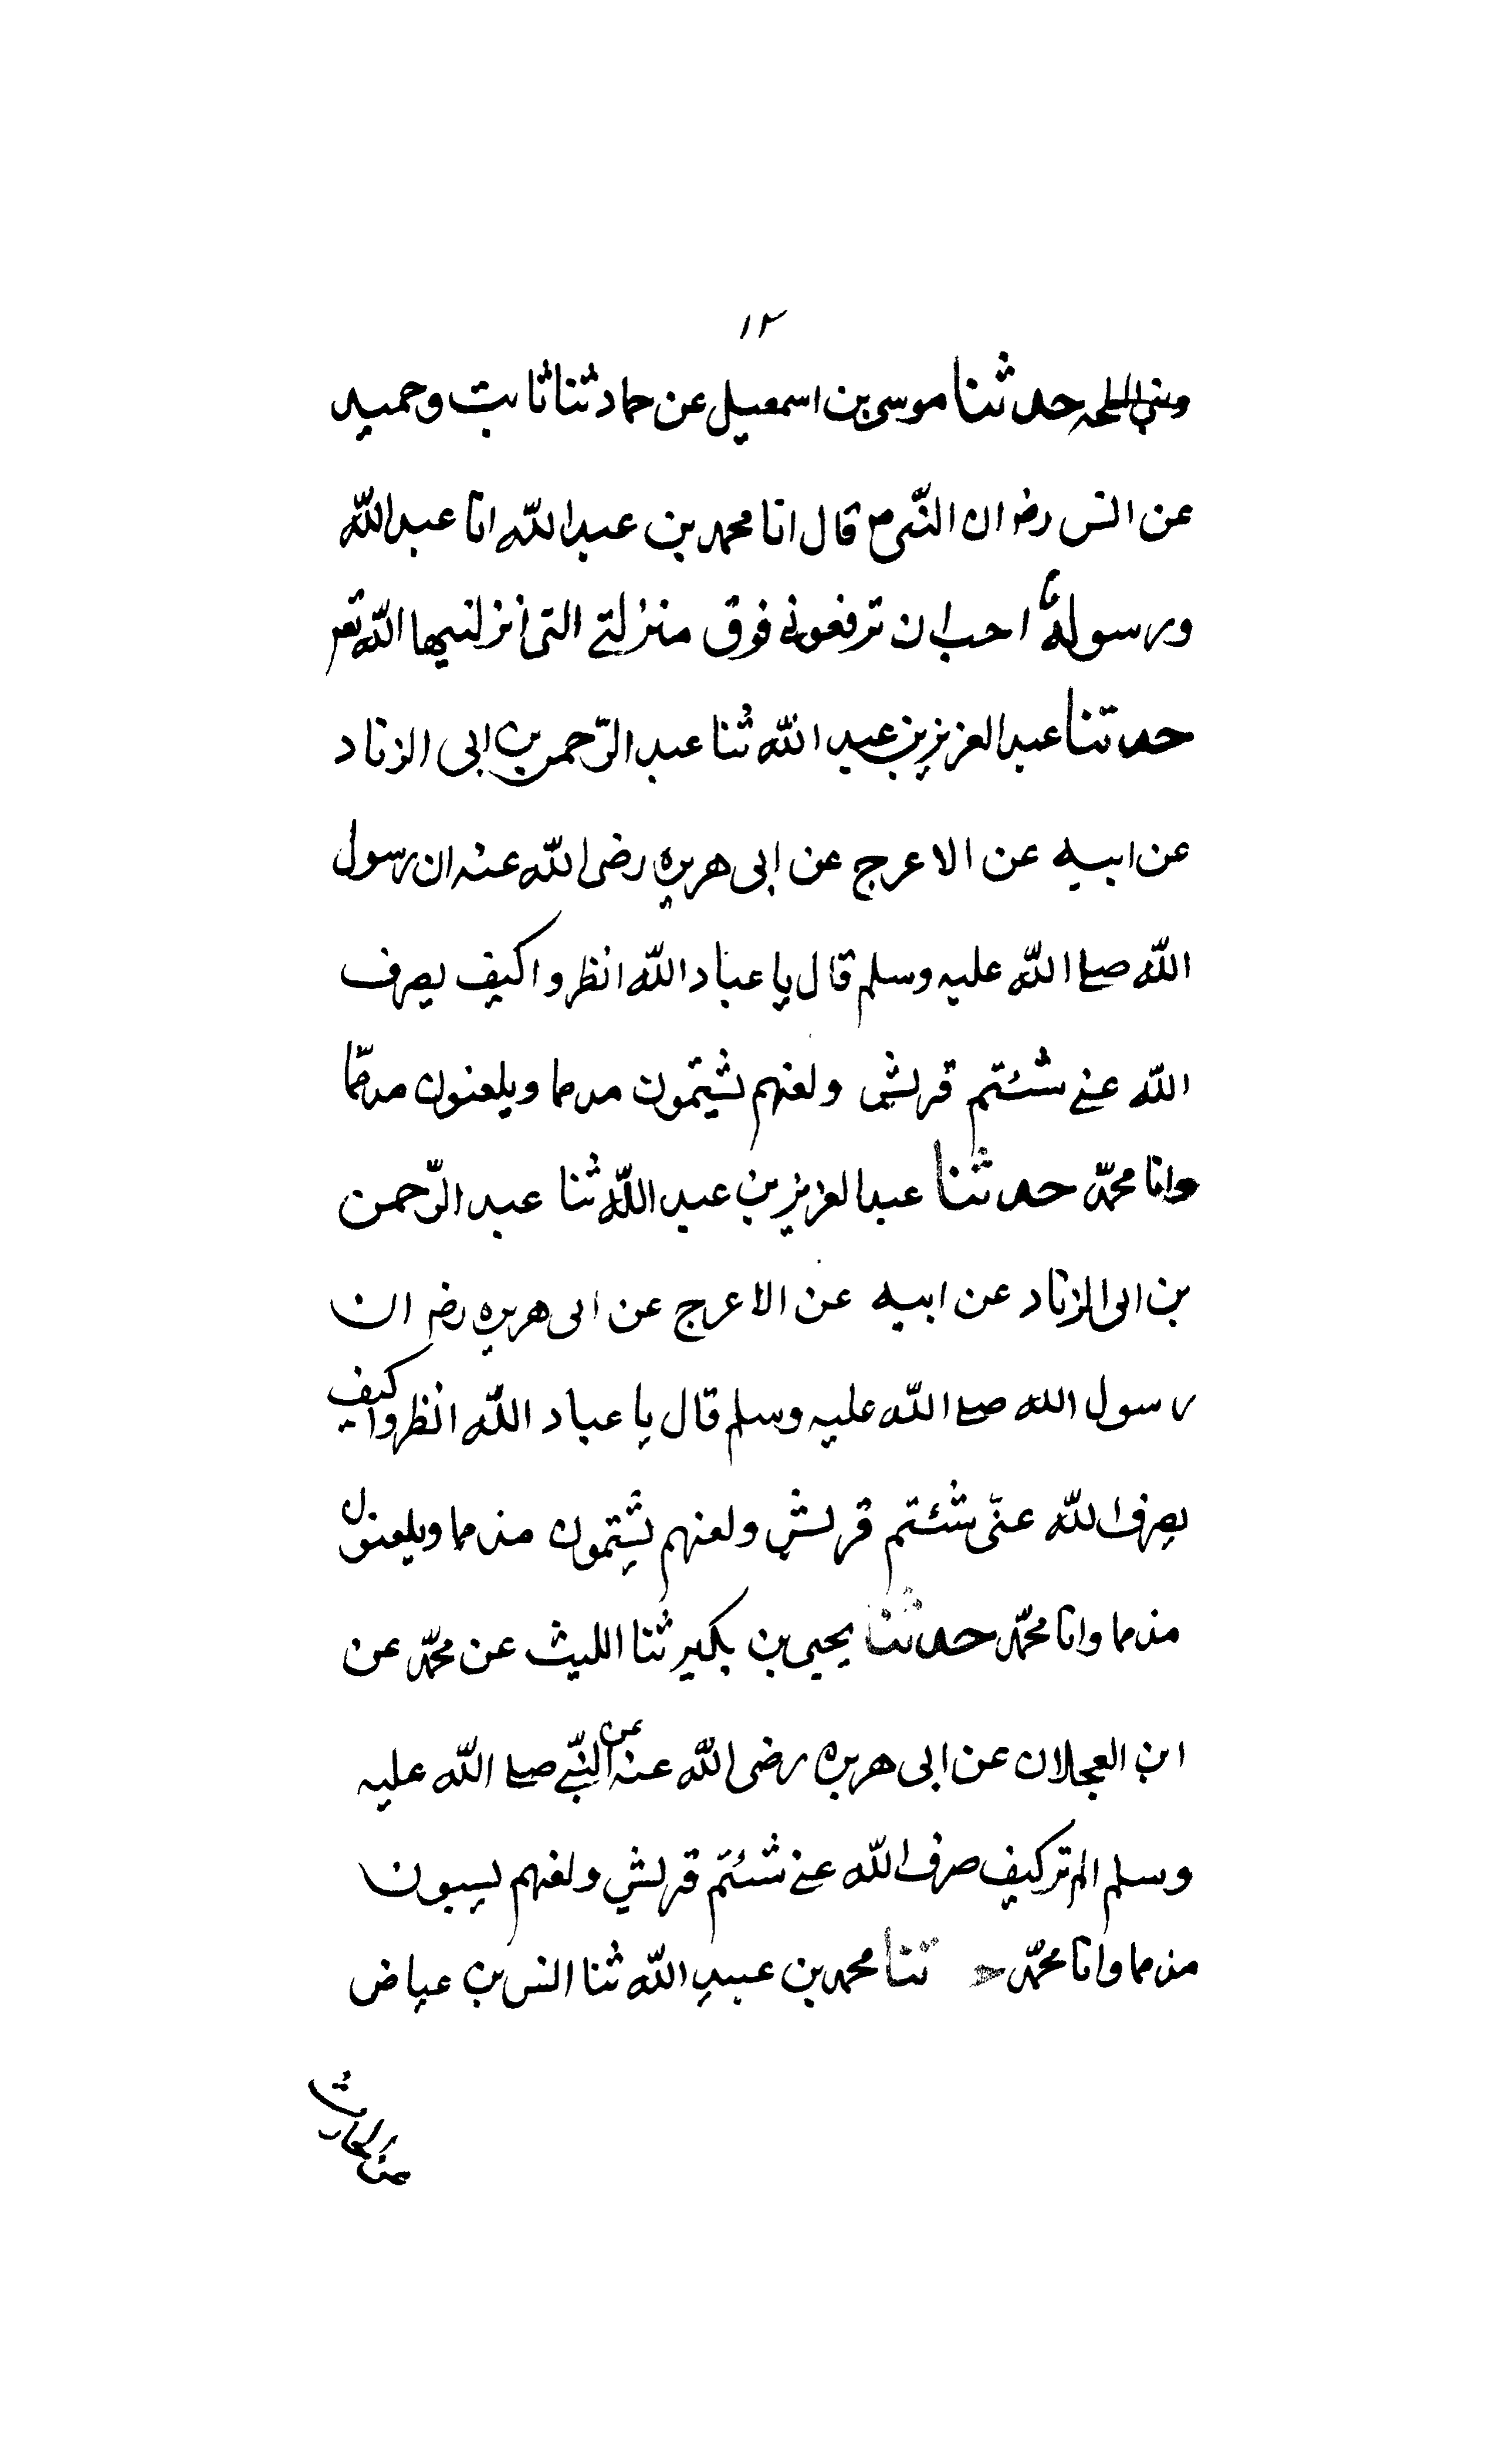 ١٢
ونبي الملحمه حدثنا موسى بن اسمعيل عن حماد ثنا ثابت وحميد
عن انس رضر ان النبى ص قال انا محمد بن عبد الله انا عبد الله
ورسوله ما احب ان ترفعونى فوق منزلتے التى انزلنيها الله تعر
حدثنا عبد العزيز بن عبد الله ثنا عبد الرّحمن بن ابى الزناد
عن ابيه عن الاعرج عن ابى هريره رضى الله عنه ان رسول
الله صلے الله عليه وسلم قال يا عباد الله انظروا كيف يصرف
الله عنے شئتم قريش ولعنهم يشتمون مدمما ويلعنون مدمّما
وانا محمّد حدثنا عبد العزيز بن عبد اللّه ثنا عبد الرّحمن
بن ابى الزناد عن ابيه عن الاعرج عن ابى هريره رضر ان
رسول الله صلے الله عليه وسلم قال يا عباد الله انظروا كيف
يصرف الله عنّى شئتم قريش ولعنهم يشتمون مذمما ويلعنون
مذمما وانا محمّد حدثنا يحيى بن بكير ثنا الليث عن محمّد عن
ابن العجلان عن ابى هريره رضى الله عنه عن النبے صلے الله عليه
وسلم الم تر كيف صرف الله عنے شئتم قريش ولعنهم يسبون
مذمما وانا محمّد ح ثنا محمد بن عبيد الله ثنا انس بن عياض
عن الحارث